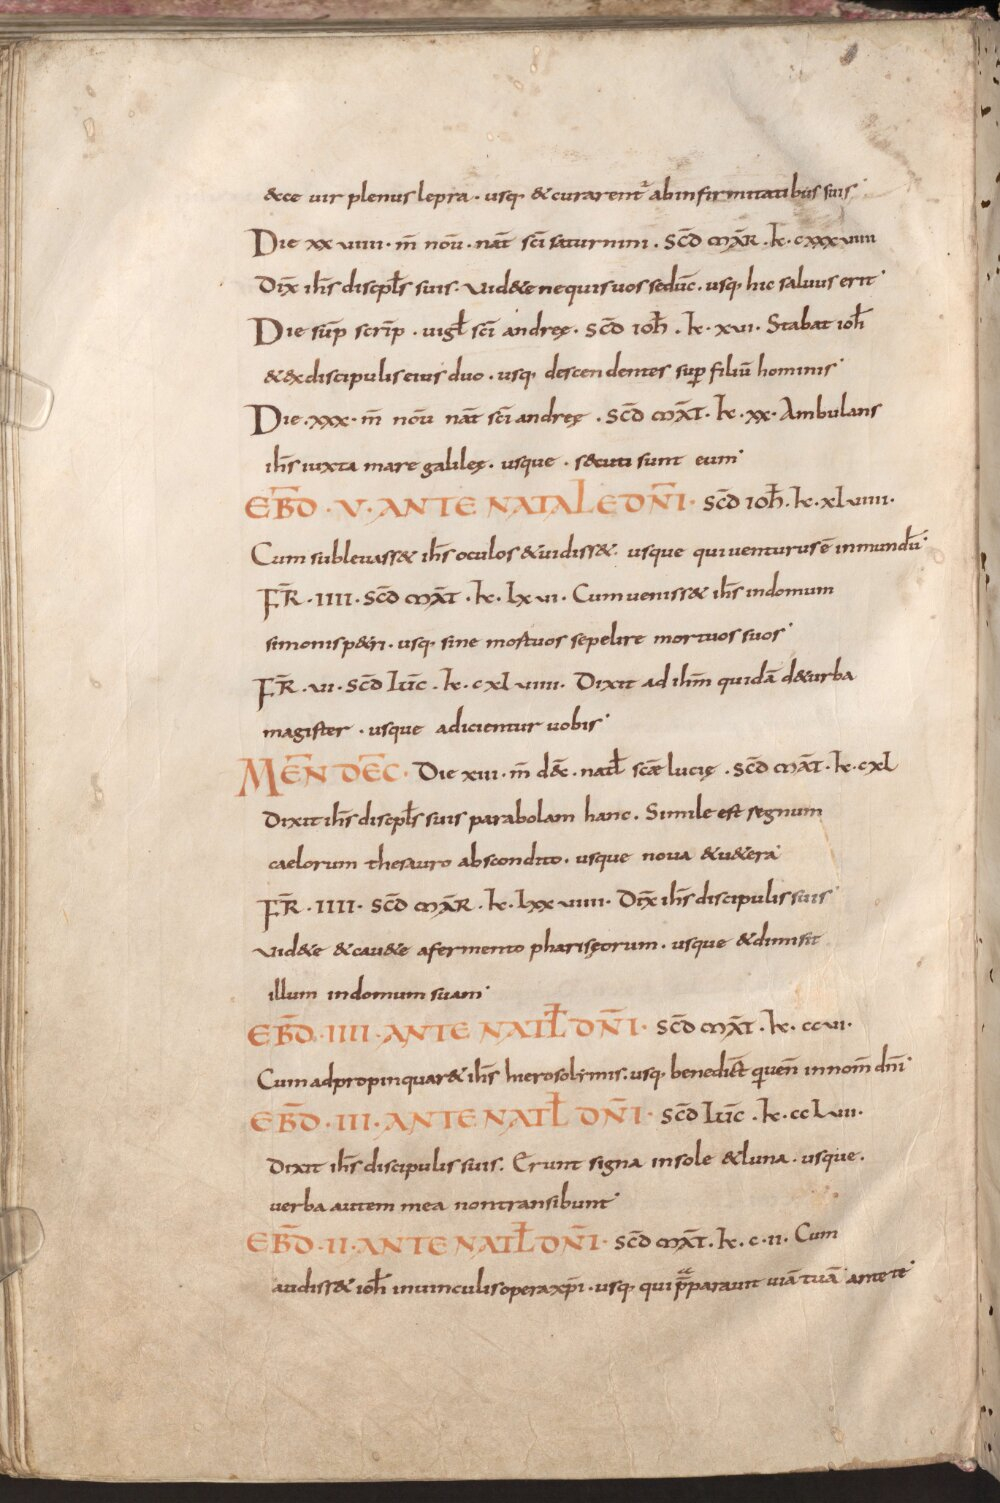 &cce uir plenus lepra · usq· & curarent᷑ ab infirmitatibus suis·
Die xx viiii · m̄ nou̅ · nat̄ sc̄i saturnini · sc̄d mār · k̄ · cxxxviiii
Dix̄ ih̄s discipl̄s suis · uid&e ne quis uos seduc̄ · usq· hic saluus erit·
Die sup̄ scrip̄ · uigl̄ sc̄i andreę · sc̄d ioh̄ · k̄ · xvi · Stabat ioh̄
& ex discipulis eius duo · usq· descendentes sup̱ filiū hominis·
Die · xxx · m̄ nou̅ nat̄ sc̄i andreę · sc̄d māt · k̄ · xx · Ambulans
ih̄s iuxta mare galileę · usque · s&cuti sunt eum·
EB̄D · V · ANTE NATALE DN̄I · sc̄d ioh̄ · k̄ · xl viiii ·
Cum subleuass& ih̄s oculos & uidiss& · usque qui uenturus ē in mundū·
FR̄ · IIII · sc̄d māt · k̄ · lx vi · Cum ueniss& ih̄s in domum
simonis p&ri · usq· sine mortuos sepelire mortuos suos·
FR̄ · vi · sc̄d luc̄ · k̄ · cxl viiii · Dixit ad ih̄m quidā d& urba
magister · usque adicientur uobis·
MEN̄ DEC̄ · Die xiii · m̄ dēc · natl̄ scǣ lucię · sc̄d māt · k̄ · cxl
Dixit ih̄s discipl̄s suis parabolam hanc · Simile est regnum
caelorum thesauro abscondito · usque noua & u&era·
FR̄ · IIII · sc̄d mār · k̄ · lxx viiii · Dix̄ ih̄s discipulis suis·
Uid&e & cau&e a fermento phariseorum · usque & dimisit
illum in domum suam·
EB̄D · IIII · ANTE NATL̄ DN̄I · sc̄d māt · k̄ · cc vi ·
Cum adpropinquar& ih̄s hierosolimis · usq· benedict̄ qui uen̄ in nom̄ dn̄i·
EB̄D · III · ANTE NATL̄ DN̄I · sc̄d luc̄ · k̄ · cc l vii ·
Dixit ih̄s discipulis suis · Erunt signa in sole & luna · usque ·
uerba autem mea non transibunt·
EB̄D · II · ANTE NATL̄ DN̄I · sc̄d māt · k̄ · c · ii · Cum
audiss& ioh̄ in uinculis opera xp̄i · usq· qui p̄parauit uiā tuā ante te·